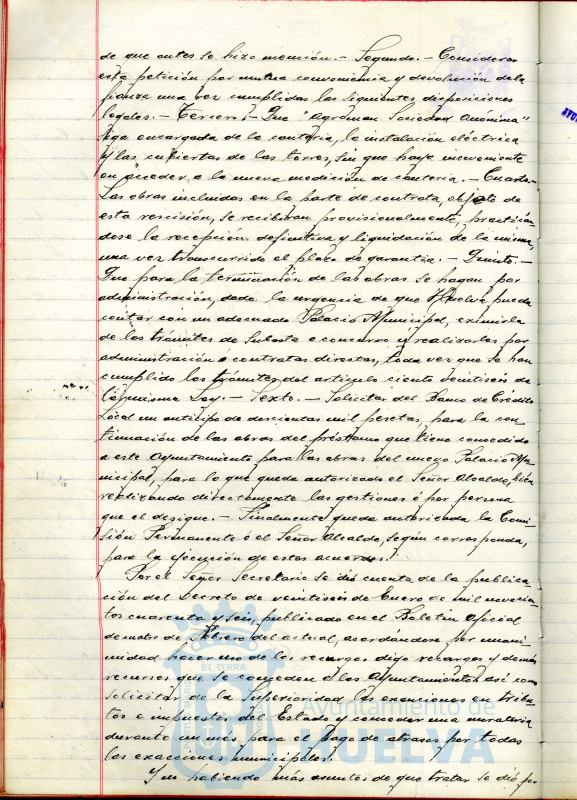 de que antes se hizo mención.- Segundo.- Considerar
esta petición por mutua conveniencia y devolución de la
fianza una vez cumplidas las siguientes disposiciones
legales.- Tercero.- Que "Agroman Sociedad Anónima"
siga encargada de la cantería, la instalación eléctrica
y las cubiertas de las torres, sin que haya inconveniente
en acceder a la nueva medición de cantería.- Cuarto.-
Las obras incluidas en la parte de contrata, objeto de
esta rescisión, se recibirán provisionalmente, practicán-
dose la recepción definitiva y liquidación de la misma,
una vez transcurrido el plazo de garantía.- Quinto.-
Que para la terminación de las obras se hagan por
administración, dada la urgencia de que Huelva pueda
contar con un adecuado Palacio Municipal, eximirla
de los trámites de subasta o concurso y realizarlas por
administración o contratas directas, toda vez que se han
cumplido los trámites del artículo ciento veintiseis de
la misma Ley.- Sexto.- Solicitar del Banco de Crédito
Local un anticipo de doscientas mil pesetas, para la con-
tinuación de las obras del préstamo que tiene concedido
a este Ayuntamiento para las obras del nuevo Palacio Mu-
nicipal, para lo que queda autorizado el Señor Alcalde, bien
realizando directamente las gestiones ó por persona
que el designe.- Finalmente queda autorizada la Comi-
sión Permanente ó el Señor Alcalde, según corresponda,
para la ejecución de estos acuerdos.
Por el Señor Secretario se dió cuenta de la publica-
ción del Decreto de veintiseis de Enero de mil novecien-
tos cuarenta y seis, publicado en el Boletín Oficial
de cuatro de Febrero del actual, acordándose por unani-
midad hacer uso de los recargos digo recargos y demás
recursos que se conceden a los Ayuntamientos así como
solicitar de la Superioridad las exenciones en tribu-
tos e impuestos del Estado y conceder una moratoria
durante un mes, para el pago de atrasos por todas
las exacciones municipales.
Y no habiendo más asuntos de que tratar se dió por
ET TERRA
Ayuntamiento de
HUELVA